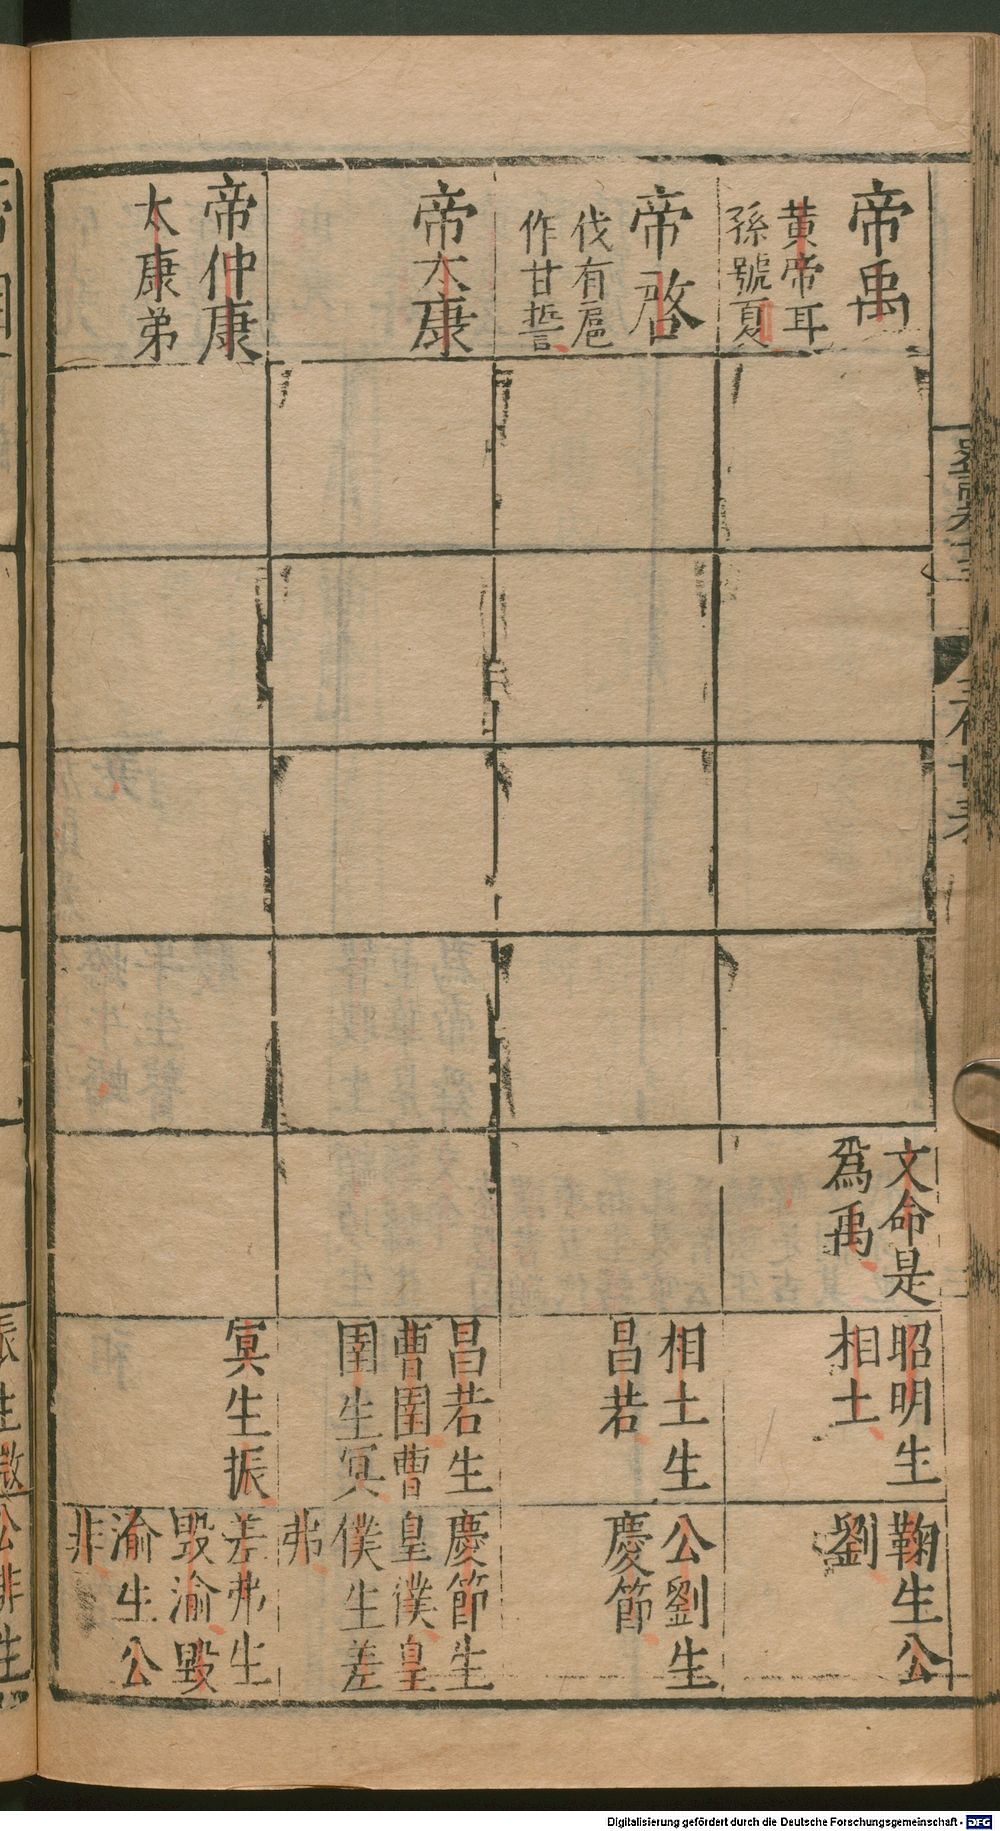 帝禹
黃帝耳
孫號夏
文命是
為禹
昭明生
相土
鞠生公
劉
帝啓
伐有扈
作甘誓
相土生
昌若
公劉生
慶節
帝太康
昌若生
曹圉曹
圉生冥
慶節生
皇僕皇
僕生差
弗
帝仲康
太康弟
冥生振
差弗生
毀渝毀
渝生公
非
三代世表
Digitalisierung gefördert durch die Deutsche Forschungsgemeinschaft - DFG